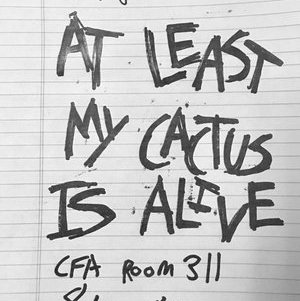 AT LEAST
MY CACTUS
IS ALIVE
CFA ROOM 311